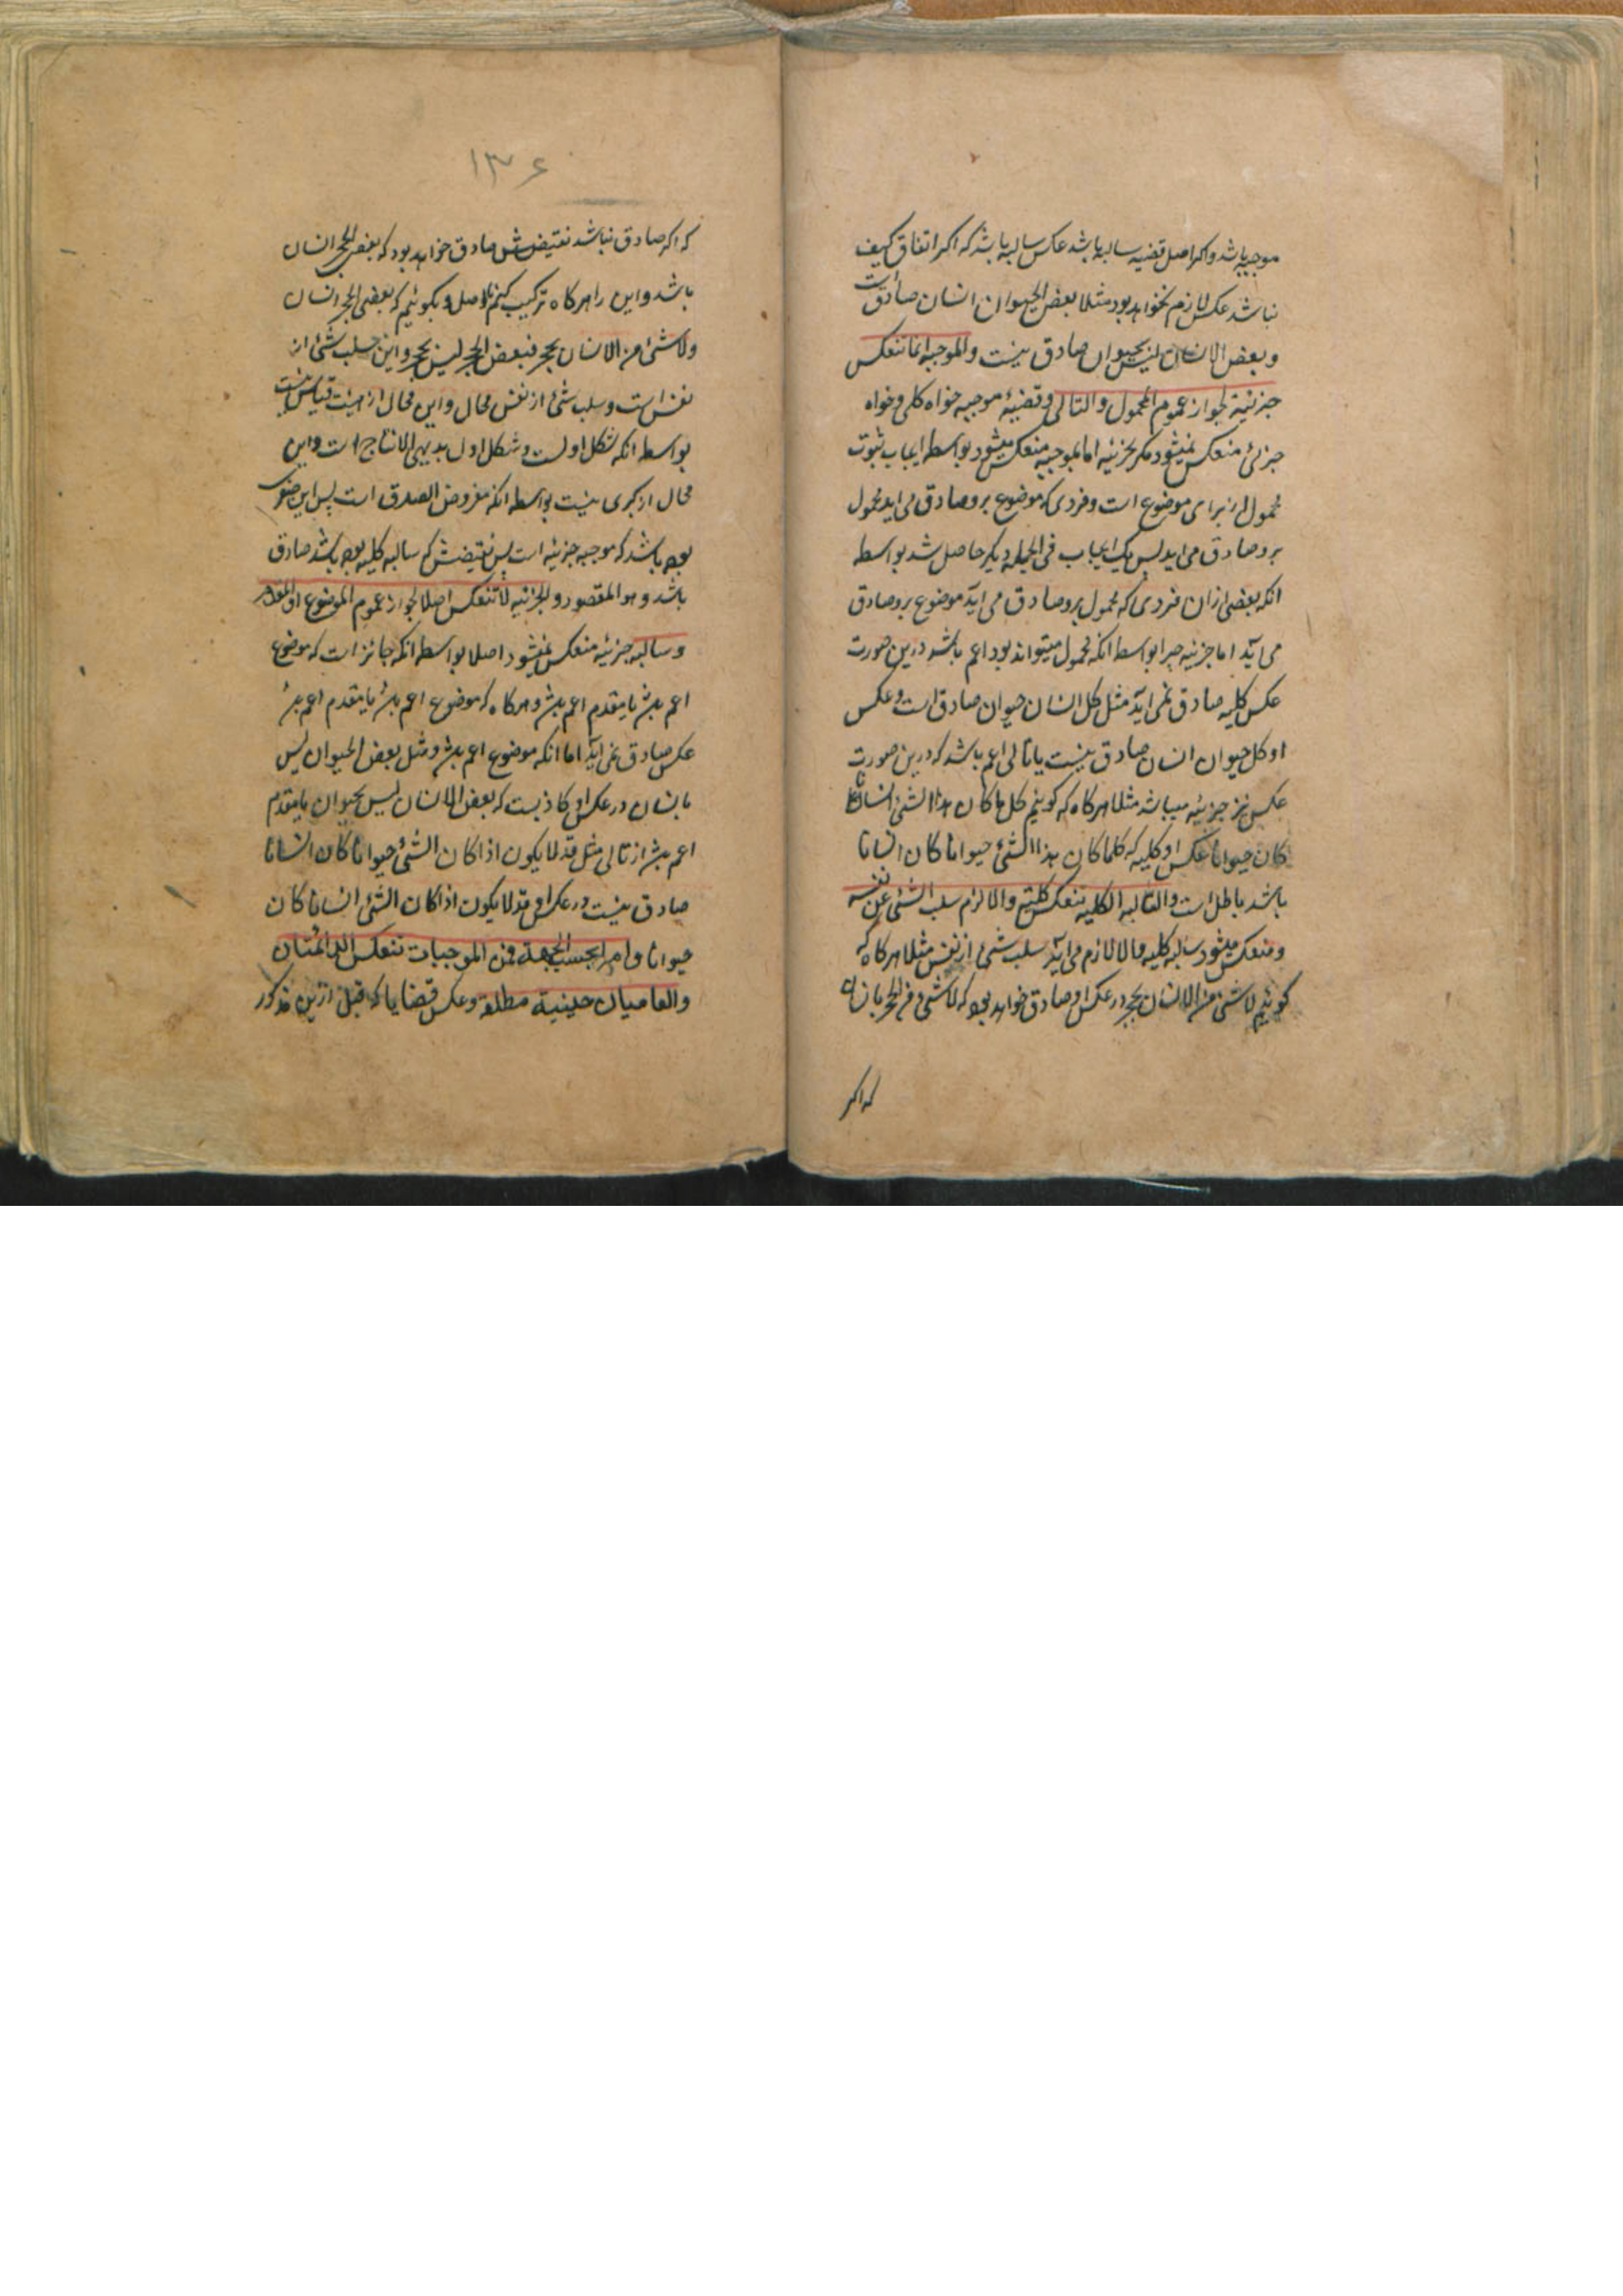 موجبه باشد و اکر اصل قضیه سالبه باشد عکس سالبه باشد که اکر اتفاق کیف
نباشد عکس لازم نخواهد بود مثلا بعض الحیوان انسان صادقست
و بعض الانسان لیس بحیوان صادق نیست والموجبه انما تنعکس
جزئیة لجواز عموم المحمول والتالی و قضیهٔ موجبه خواه کلی و خواه
جزئی منعکس نمیشود مکر بجزئیه اما بموجبه منعکس میشود بواسطه ایجاب ثبوت
محمول از برای موضوع است و فردی که موضوع برو صادق می اید محمول
برو صادق می اید پس یک ایجاب فی الجمله دیکر حاصل شد بواسطه
انکه بعضی ازان فردی که محمول برو صادق می آید موضوع برو صادق
می آید اما جزئیه چرا بواسطه انکه محمول میتواند بود اعم باشد درین صورت
عکس کلیه صادق نمی اید مثل کل انسان حیوان صادق است و عکس
او کل حیوان انسان صادق نیست یا تالی اعم باشد که درین صورت
عکس نیز جزئیه میباشد مثلا هرکاه که کوئیم کل ما کان هذا الشئ انسانا
کان حیوانا عکس او کلیه که کلما کان هذا الشئ حیوانا کان انسانا
باشد باطل است والسالبه الکلیه تنعکس کلیته والا لزم سلب الشئ عن نفسه
و منعکس میشود سالبه کلیه والا لازم می آید سلب شئ از نفس مثلا هرکاه که
کوئیم لاشئ من الانسان بحجر در عکس او صادق خواهد بود که لاشئ من الحجر بانسان
که اکر
۱۳۶
که اکر صادق نباشد نقیضش صادق خواهد بود که بعض الحجر انسان
باشد و این را هرکاه ترکیب کنیم باصل و بکوئیم که بعض الحجر انسان
ولاشئ من الانسان بحجر فبعض الحجر لیس بحجر و این سلب شئ از
نفس است و سلب شئ از نفس محال و این محال از هیئت قیاس نیست
بواسطه انکه شکل اولست و شکل اول بدیهی الانتاج است و این
محال از کبری نیست بواسطه انکه مفروض الصدق است پس این
بوده باشد که موجبه جزئیه است پس نقیضش که سالبه کلیه بوده باشد صادق
باشد و هو المقصود والجزئیه لاتنعکس اصلا لجواز عموم الموضوع او المقدم
و سالبه جزئیه منعکس نمیشود اصلا بواسطه انکه جائز است که موضوع
اعم باشد یا مقدم اعم باشد و هرکاه که موضوع اعم باشد یا مقدم اعم باشد
عکس صادق نمی اید اما انکه موضوع اعم باشد مثل بعض الحیوان لیس
بانسان در عکس او کاذبست که بعض الانسان لیس بحیوان یا مقدم
اعم باشد از تالی مثل قد لا یکون اذا کان الشئ حیوانا کان انسانا
صادق نیست در عکس او قد لا یکون اذا کان الشئ انسانا کان
حیوانا واما بحسب الجهة فمن الموجبات تنعکس الدائمتان
والعامتان حینیة مطلقة و عکس قضایا که قبل ازین مذکور